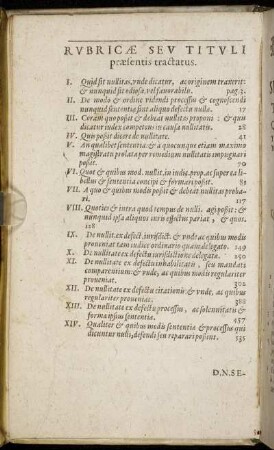 RVBRICÆ SEV TITVLI
præsentis tractatus.
I. Quid sit nullitas, vnde dicatur, ac originem traxerit:
& nunquid sit odiosa, vel fauorabilis. pag. 1.
II. De modo & ordine videndi processus & cognoscendi
nunquid sententia sint aliquo defectu nulla. 17
III. Coram quo possit & debeat nullitas proponi : & quis
dicatur iudex competens in causa nullitatis. 28
IV. Quis possit dicere de nullitate. 41
V. An quælibet sententia: & a quocunque etiam maximo
magistratu prolata per remedium nullitatis impugnari
possit. 70
VI. Quot & quibus mod. nullit. in iudic. prop. ac super ea li
bellus & sententia concipi & formari possit. 85
VII. A quo & quibus modis possit & debeat nullitas proba-
ri. 117
VIII. Quoties & intra quod tempus de nullit. agi possit: &
nunquid ipsa aliquos iuris effectus pariat, & quos.
128
IX. De nullit. ex defect. iurisdict. & vnde ac quibus modis
proueniat tam iudice ordinario quam delegato. 149
X. De nullitate ex defectu iurisdictione delegata. 250
XI. De nullitate ex defectu inhabilitatis, seu mandati
comparentium: & vnde, ac quibus modis regulariter
proueniat. 302
XII. De nullitate ex defectu citationis: & vnde, ac quibus
regulariter proueniat. 388
XIII. De nullitate ex defectu processus, ac solennitatis &
forma ipsius sententia. 457
XIV. Qualiter & quibus modis sententia & processus qui
dicuntur nulli, defendi seu reparari possint. 535
D.N.SE-